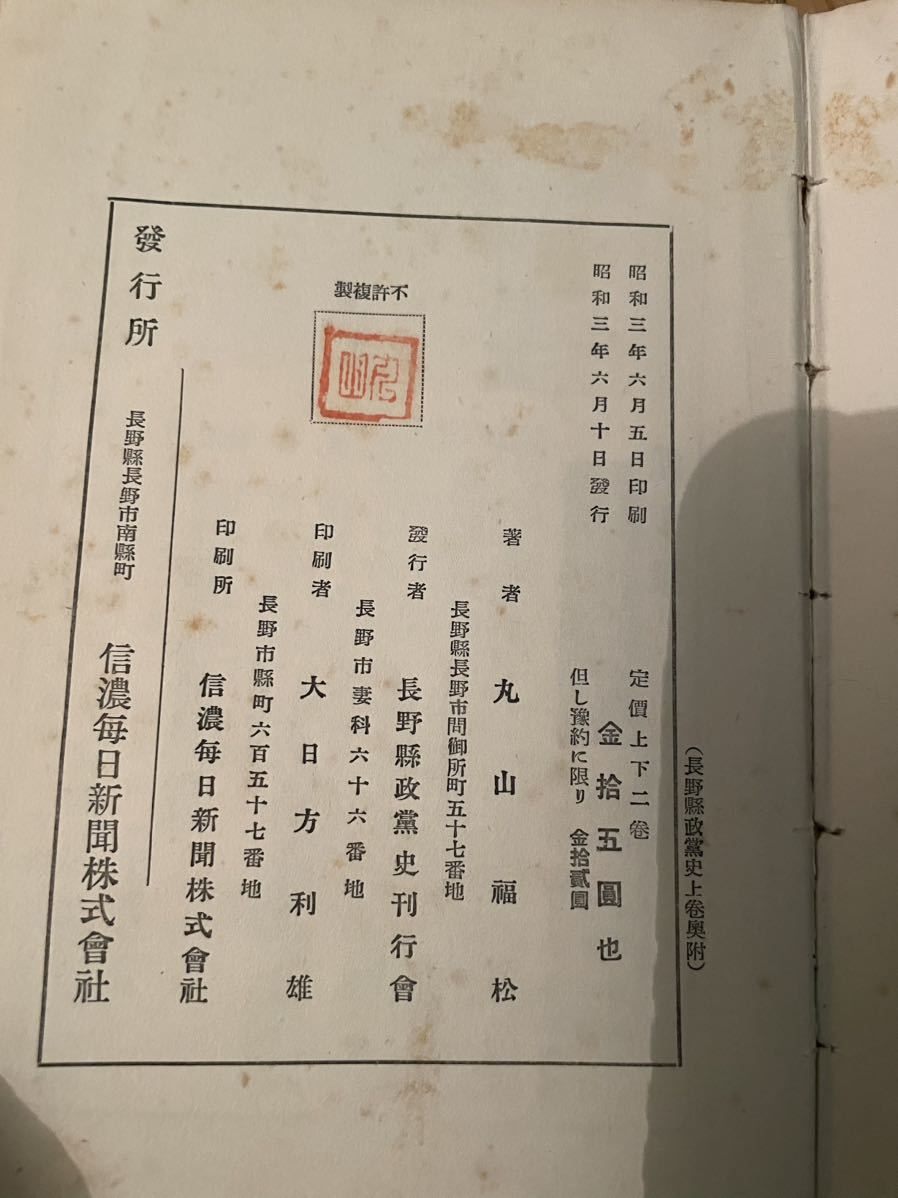 （長野縣政黨史上卷奧附）
昭和三年六月五日印刷
昭和三年六月十日發行
定價上下二卷
金拾五圓也
但し豫約に限り　金拾貳圓
不許複製
著者　丸山福松
長野縣長野市問御所町五十七番地
發行者　長野縣政黨史刊行會
長野市妻科六十六番地
印刷者　大日方利雄
長野市縣町六百五十七番地
印刷所　信濃每日新聞株式會社
發行所　長野縣長野市南縣町　信濃每日新聞株式會社